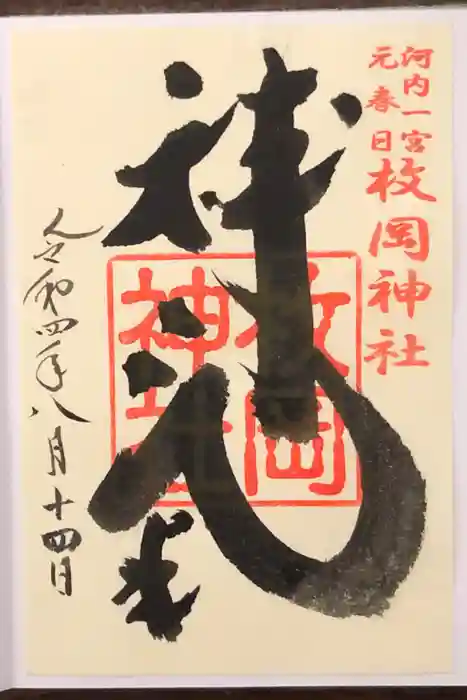 河内一宮
元春日
枚岡神社
枚岡
神社
令和四年八月十四日